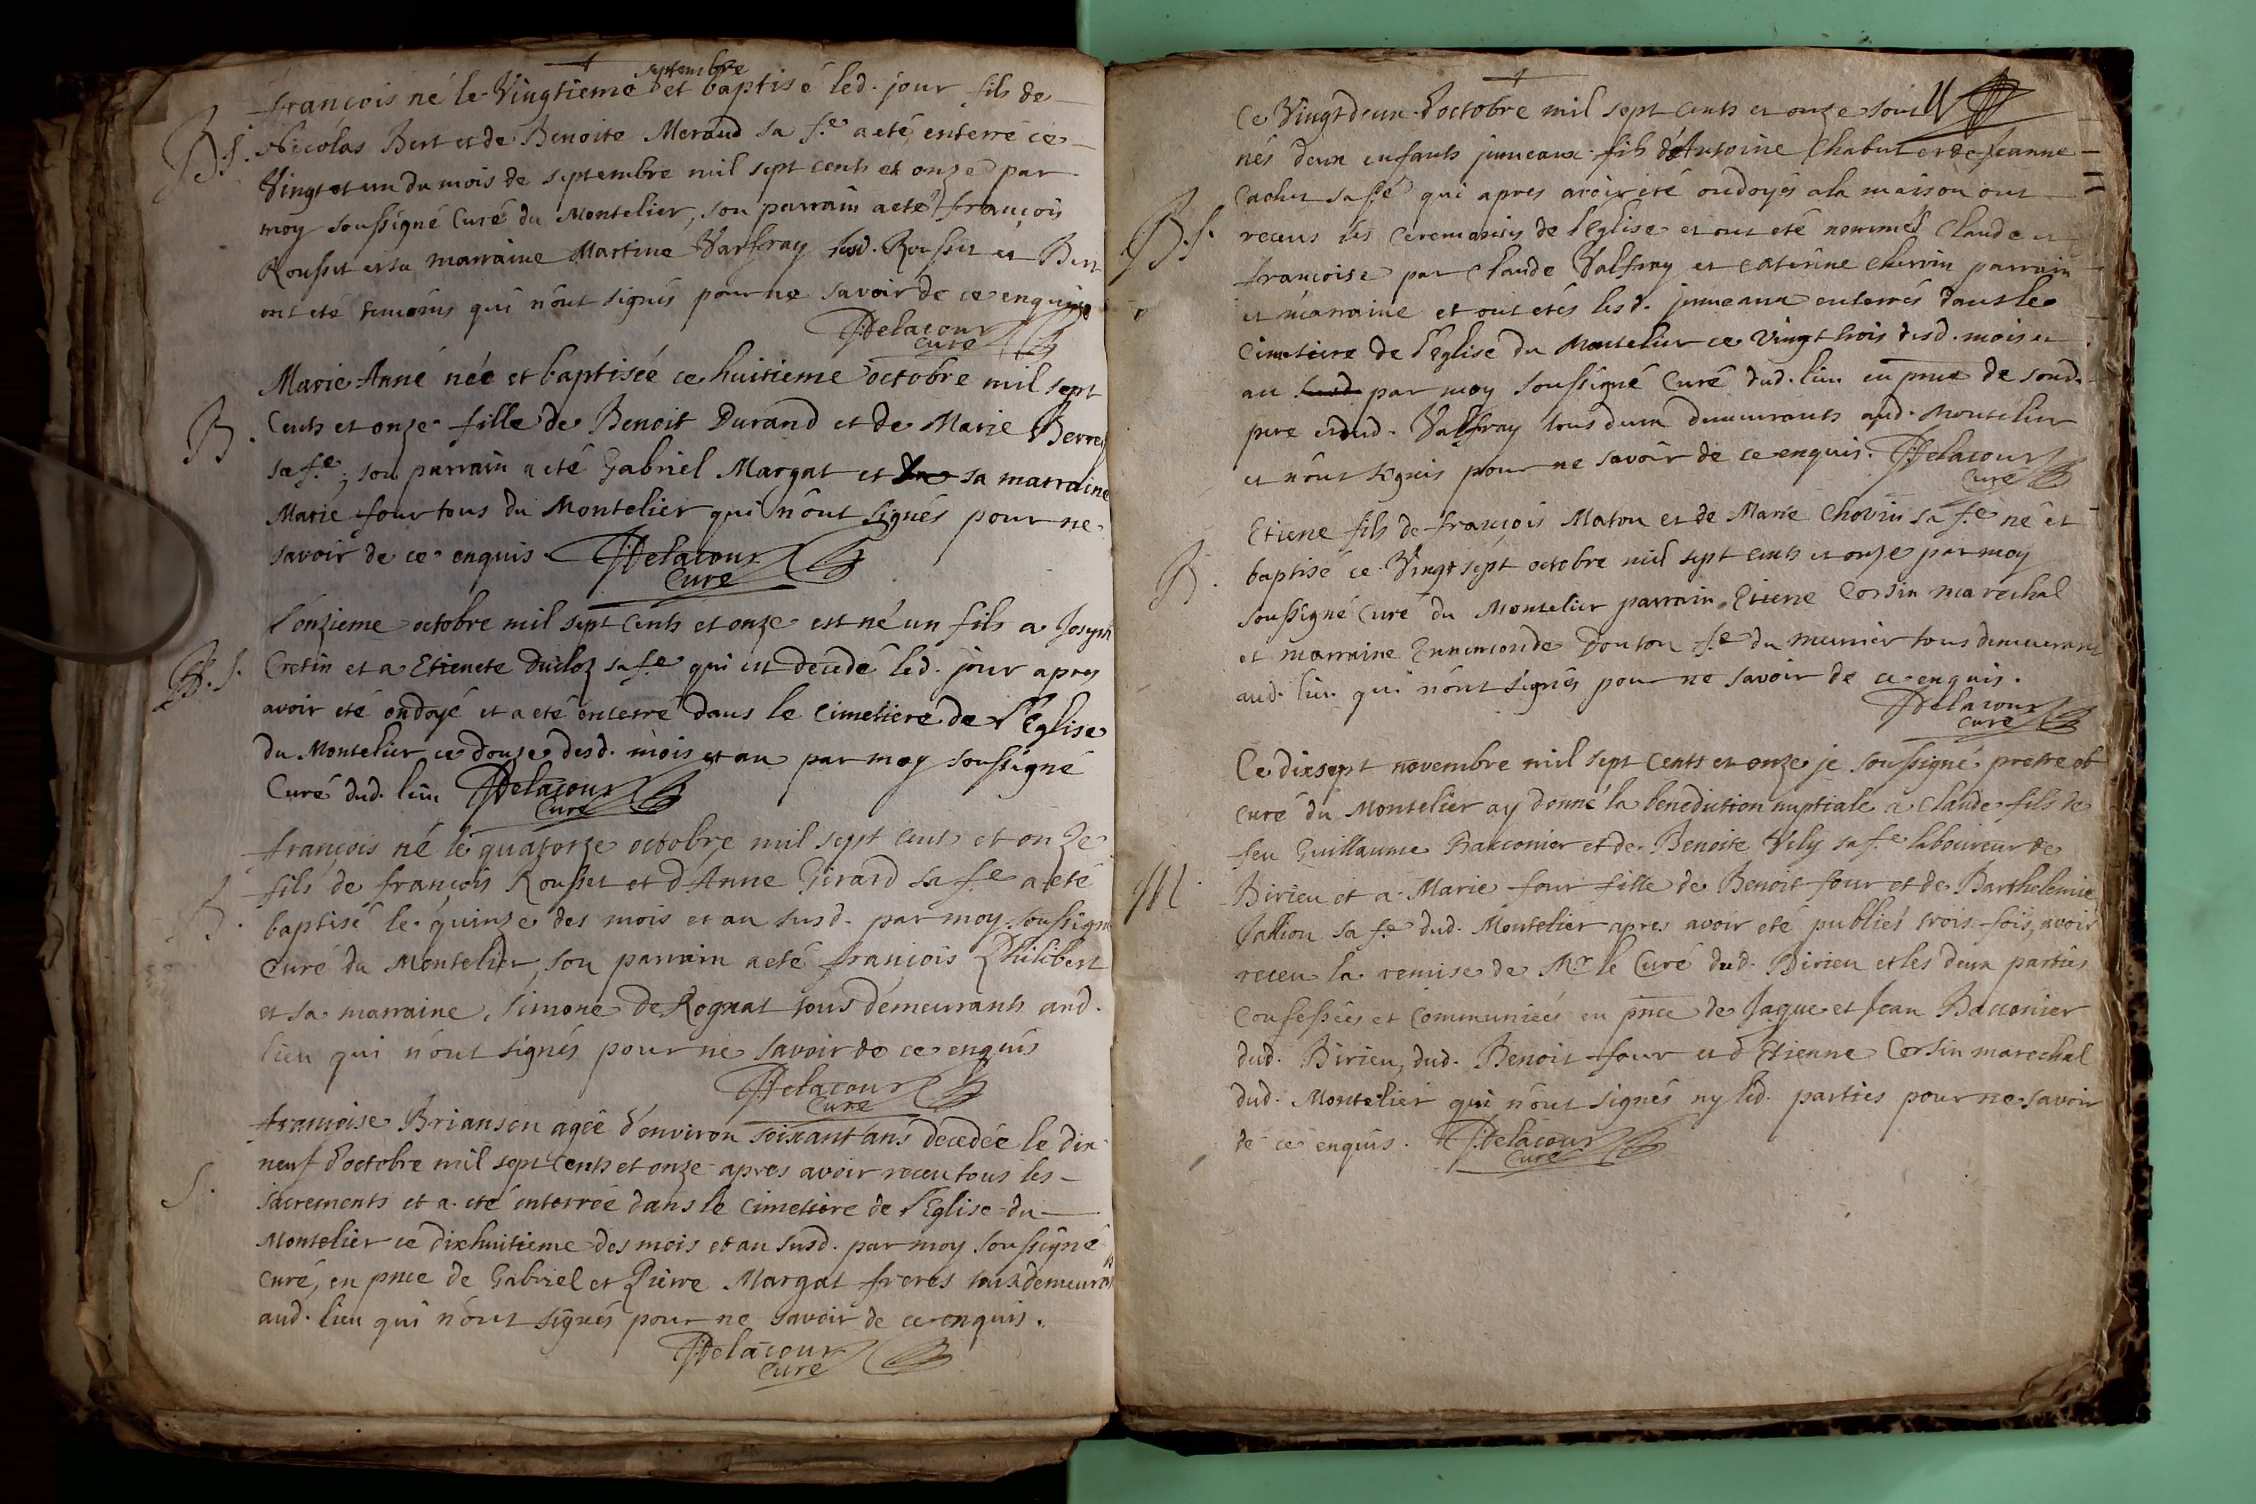 septembre
françois né le Vingtieme et baptisé led. jour fils de
B.S. Nicolas Bert et de Benoite Meraud sa f.e a eté enterré ce
Vingt et un du mois de septembre mil sept cents et onze par
moy soussigné Curé du Montelier, son parrain a eté françois
Rousset et sa marraine Martine Varfray lesd. Rousset et Bert
ont eté temoins qui n'ont signés pour ne savoir de ce enquis
Delacour
curé
Marie Anne née et baptisée ce huitieme octobre mil sept
B. Cents et onze fille de Benoit Durand et de Marie
sa f.e, son parrain a eté Gabriel Margat et sa marraine
Marie four tous du Montelier qui n'ont signés pour ne
savoir de ce enquis Delacour
Curé
L'onzieme octobre mil sept Cents et onze est né un fils a Joseph
B.S. Cretin et a Etienete Ducloz sa f.e qui est decedé led. jour apres
avoir eté ondoyé et a eté enterré dans le Cimetiere de l'Eglise
du Montelier ce douze desd. mois et an par moy soussigné
Curé dud. lieu Delacour
Curé
françois né le quatorze octobre mil sept cent et onze
fils de françois Rousset et d'Anne Girard sa f.e a eté
B. baptisé le quinze des mois et an susd. par moy soussigné
Curé du Montelier, son parrain a eté françois Philibert
et sa marraine, Simone de Rognat tous demeurants aud.
lieu qui n'ont signés pour ne savoir de ce enquis
Delacour
Curé
françoise Brianson agée d'environ soixant ans decedée le dix
neuf d'octobre mil sept Cents et onze apres avoir receu tous les
S. sacrements et a eté enterrée dans le Cimetiere de l'Eglise du
Montelier ce dixhuitieme des mois et an susd. par moy soussigné
Curé, en pnce de Gabriel et Pierre Margat freres tous demeurants
aud. lieu qui n'ont signés pour ne savoir de ce enquis.
Delacour
Curé
Ce Vingtdeux d'octobre mil sept cents et onze sont
nés deux enfants jumeaux fils d'Antoine Chabut et de Jeanne
sa f.e qui apres avoir eté ondoyés a la maison ont
B.S. receus les ceremonies de l'Eglise et ont eté nommés Claude et
françoise par Claude Valfray et Caterine Chervin parrain
et marraine et ont etés lesd. jumeaux enterrés dans le
Cimetiere de l'Eglise du Montelier ce Vingt trois desd. mois et
an par moy soussigné Curé dud. lieu en pnce de sond.
pere et dud. Valfray tous deux demeurants aud. Montelier
et n'ont signés pour ne savoir de ce enquis. Delacour
Curé
Etiene fils de françois Maton et de Marie Chovin sa f.e né et
B. baptisé ce Vingt sept octobre mil sept cents et onze par moy
soussigné Curé du Montelier parrain Etiene Corsin marechal
et marraine Ennemonde Douton f.e du munier tous demeurant
aud. lieu qui n'ont signés pour ne savoir de ce enquis.
Delacour
curé
Ce dixsept novembre mil sept Cents et onze je soussigné prestre et
Curé du Montelier ay donné la benediction nuptiale a Claude fils de
feu Guillaume Bacconier et de Benoite Vely sa f.e laboureur de
M. Birieu et a Marie four fille de Benoit four et de Barthelemie
sa f.e dud. Montelier apres avoir eté publiés trois fois, avoir
receu la remise de Mr le Curé dud. Birieu et les deux parties
Confessées et Communiées en pnce de Jaque et Jean Bacconier
dud. Birieu, dud. Benoit four et d'Etienne Corsin marechal
dud. Montelier qui n'ont signés ny led. parties pour ne savoir
de ce enquis. Delacour
Curé